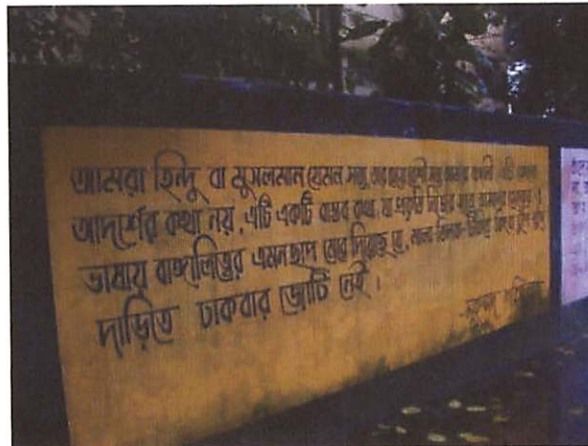 আমরা হিন্দু বা মুসলমান যেমন সত্য, তার চেয়ে বেশী সত্য আমরা বাঙালী। এটি কোনো
আদর্শের কথা নয়, এটি একটি বাস্তব কথা। মা প্রকৃতি নিজের হাতে আমাদের চেহারায় ও
ভাষায় বাঙালিত্বের এমন ছাপ মেরে দিয়েছে যে, মালা-তিলক-টিকিতে কিংবা টুপি-লুঙ্গি
দাড়িতে ঢাকবার জোটি নেই।